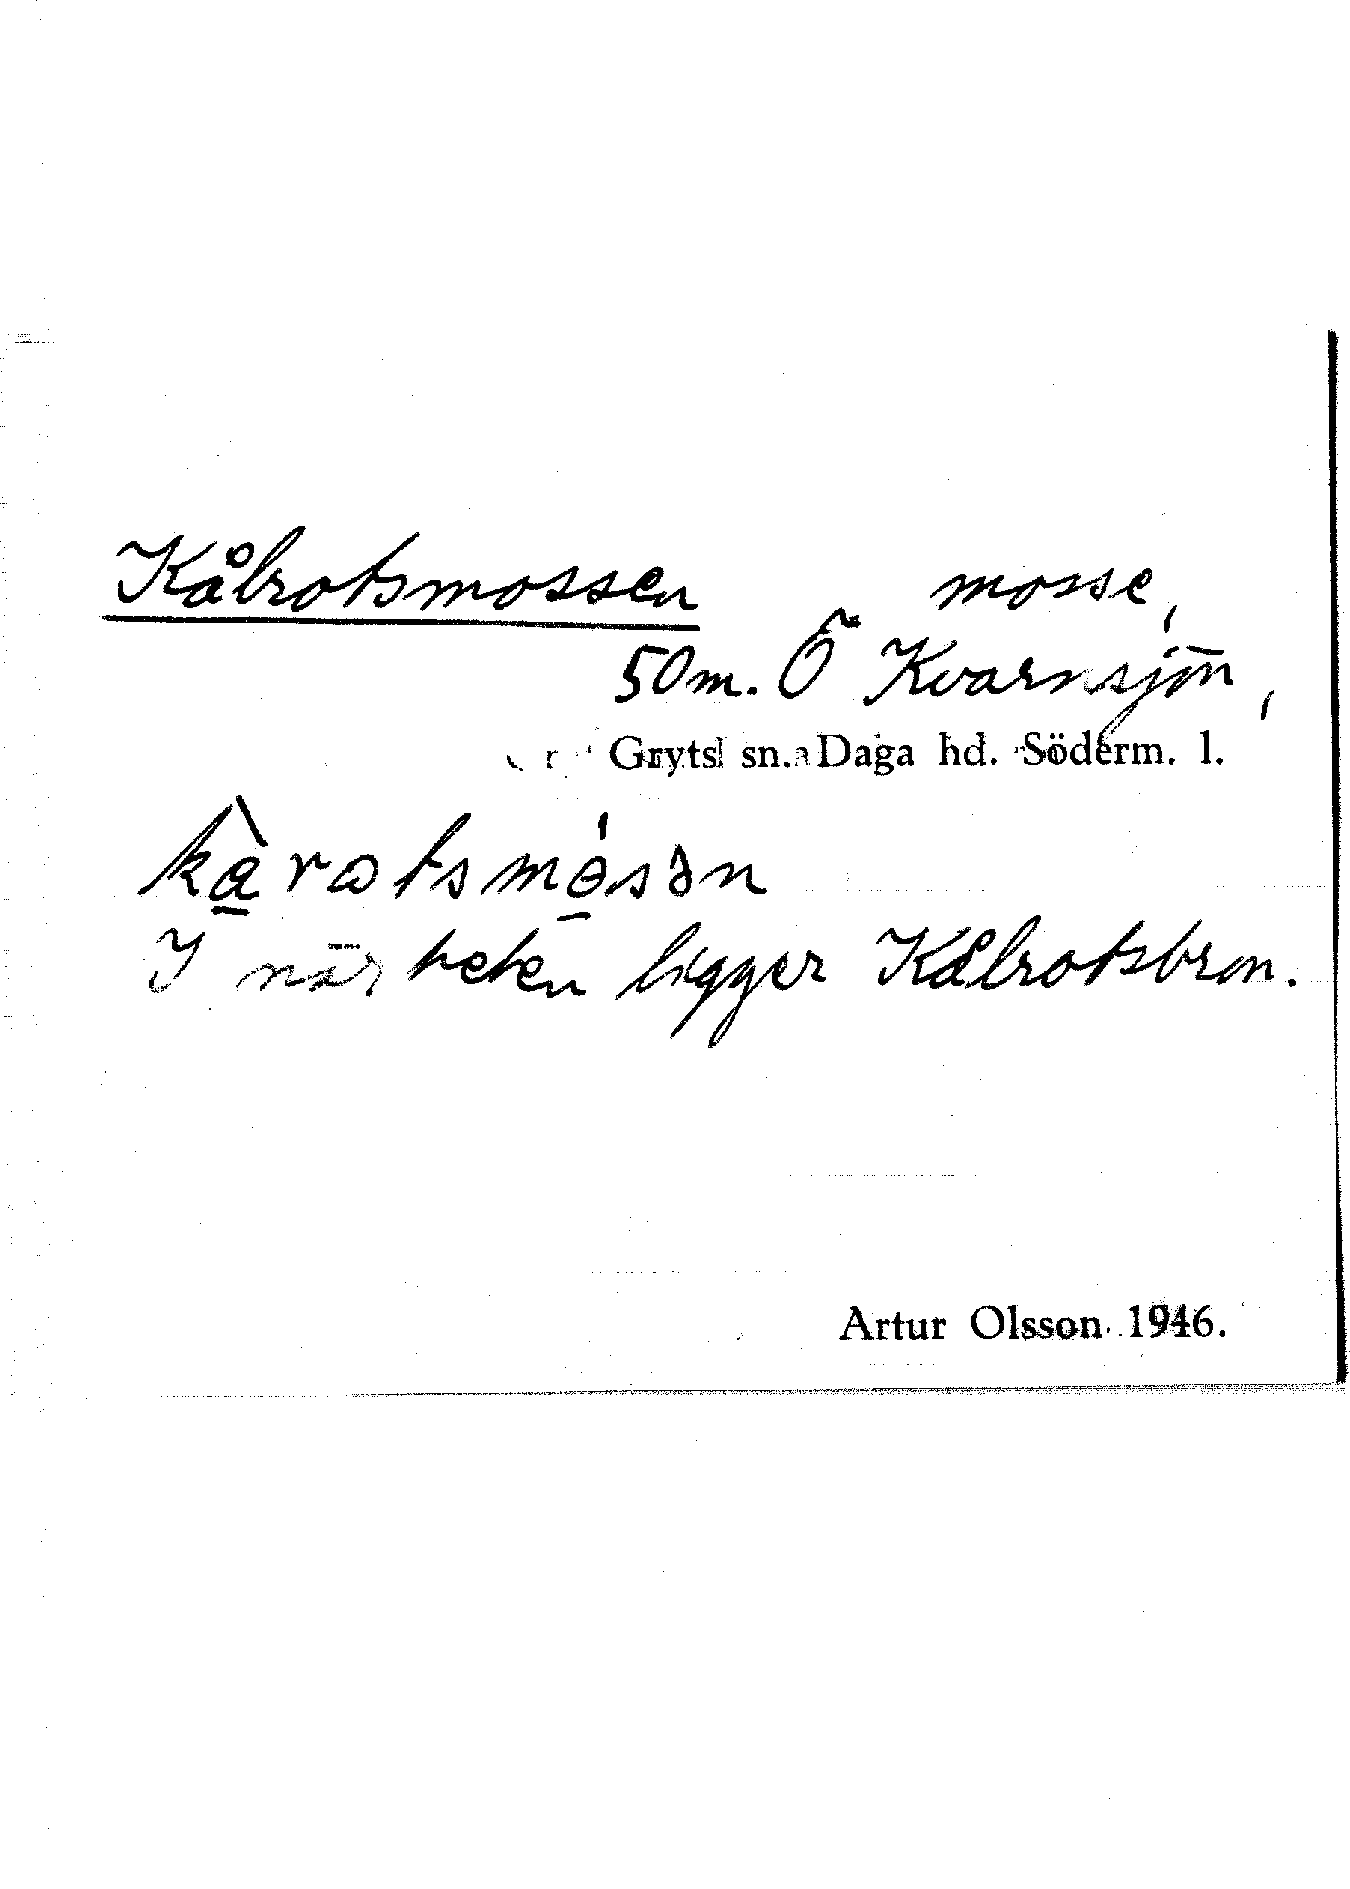 Kålrotsmossen mosse,
50 m. Ö Kvarnsjön,
Gryts sn. Daga hd. Söderm. l.
I närheten ligger Kålrotsbron.
Artur Olsson 1946.